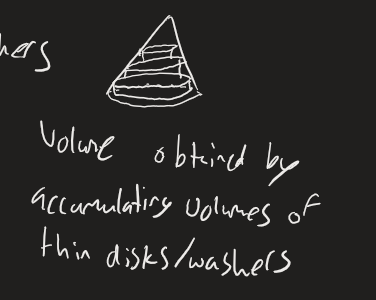 hers
Volume obtained by
accumulating volumes of
thin disks/washers